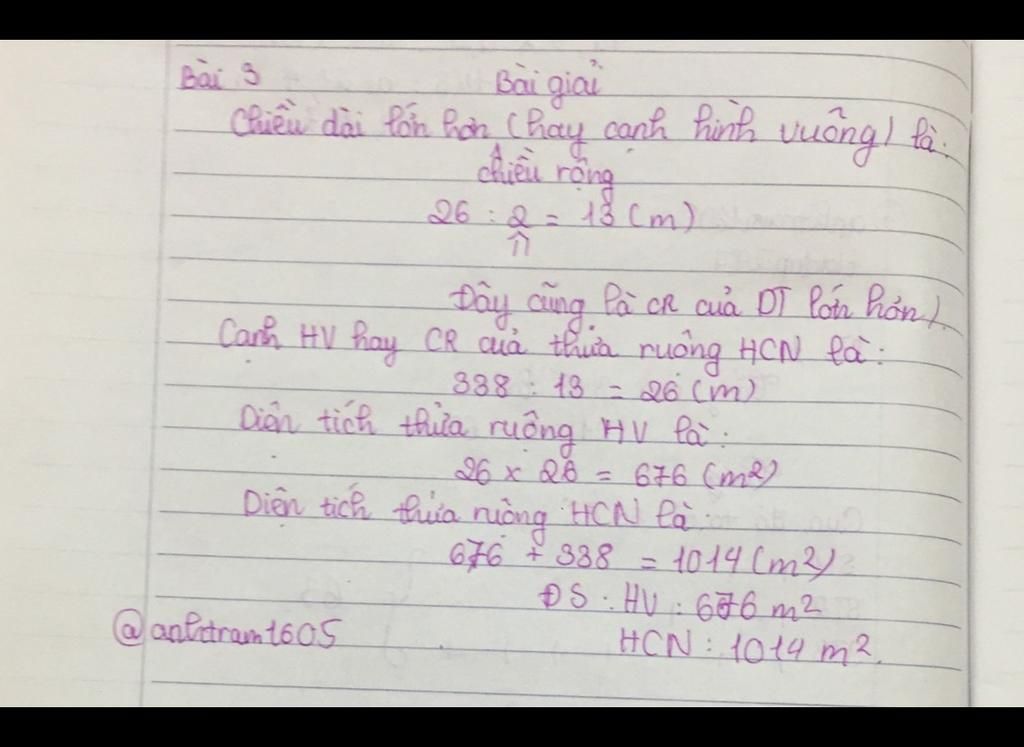 Bài 3 Bài giải
Chiều dài lớn hơn (hay cạnh hình vuông) là:
chiều rộng
26 : 2 = 13 (m)
Đây cũng là CR của DT lớn hơn).
Cạnh HV hay CR của thửa ruộng HCN là:
338 : 13 = 26 (m)
Diện tích thửa ruộng HV là:
26 x 26 = 676 (m2)
Diện tích thửa ruộng HCN là:
676 + 338 = 1014 (m2)
ĐS : HV : 676 m2
@anhtram1605 HCN : 1014 m2.